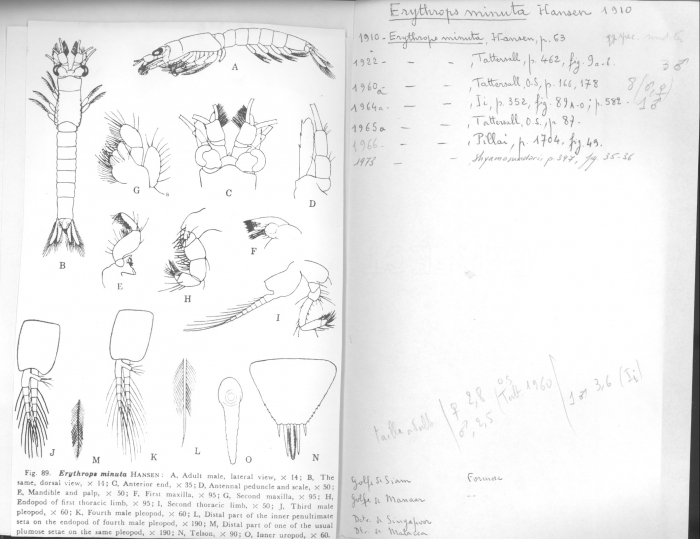 A
B
C
D
E
F
G
H
I
J
M
K
L
O
N
Fig. 89. Erythrops minuta HANSEN: A, Adult male, lateral view, × 14; B, The
same, dorsal view, × 14; C, Anterior end, × 35; D, Antennal peduncle and scale, × 50;
E, Mandible and palp, × 50; F, First maxilla, × 95; G, Second maxilla, × 95; H,
Endopod of first thoracic limb, × 95; I, Second thoracic limb, × 50; J, Third male
pleopod, × 60; K, Fourth male pleopod, × 60; L, Distal part of the inner penultimate
seta on the endopod of fourth male pleopod, × 190; M, Distal part of one of the usual
plumose setae on the same pleopod, × 190; N, Telson, × 90; O, Inner uropod, × 60.
Erythrops minuta Hansen 1910
1910 - Erythrops minuta, Hansen, p. 63
1922 - - , Tattersall, p. 462, fig. 9a-b. 3 ♂
1960a - - , Tattersall, O.S, p. 166, 178 8 (♂, ♀)
1964a - - , Ii, p. 352, fig. 89 A-O; p. 582 - 1 ♂
1965a - - , Tattersall, O.S, p 87.
1966 - - , Pillai, p. 1704, fig. 49.
1973 - - , Shyamasundari, p. 397, fig. 35-36
taille adulte ♀ 2,8 O.S Tatt. 1960 1 ♂ 3,6 (Ii)
♂ 2,5
Golfe de Siam Formose
Golfe de Manaar
Dét. de Singapour
Dét. de Malacca